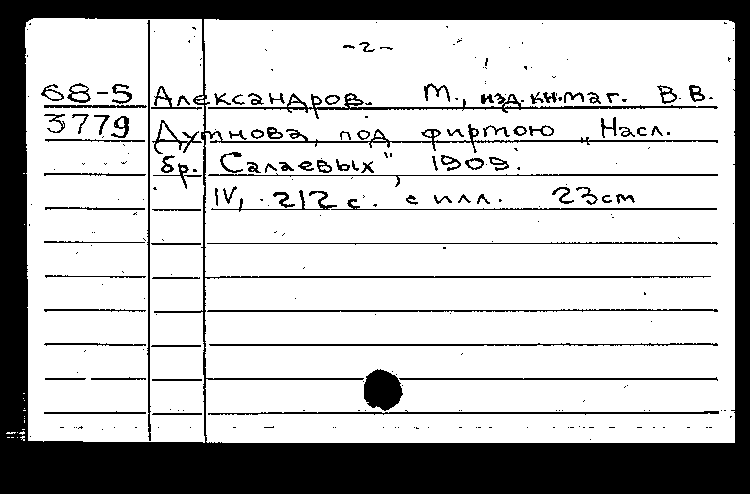 -2-
68-5 Александров. М., изд. кн. маг. В.В.
3779 Думнова, под фирмою „Насл.
бр. Салаевых", 1909.
IV, 212 с. с илл. 23 cm